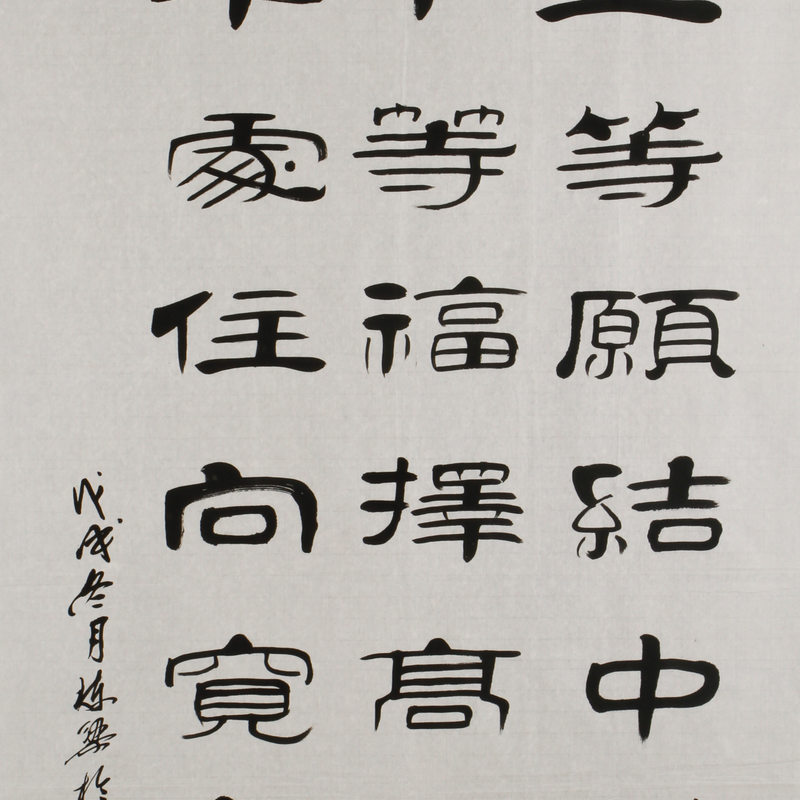 等願結中
等福擇高
處住向寬
戊戌冬月栋梁